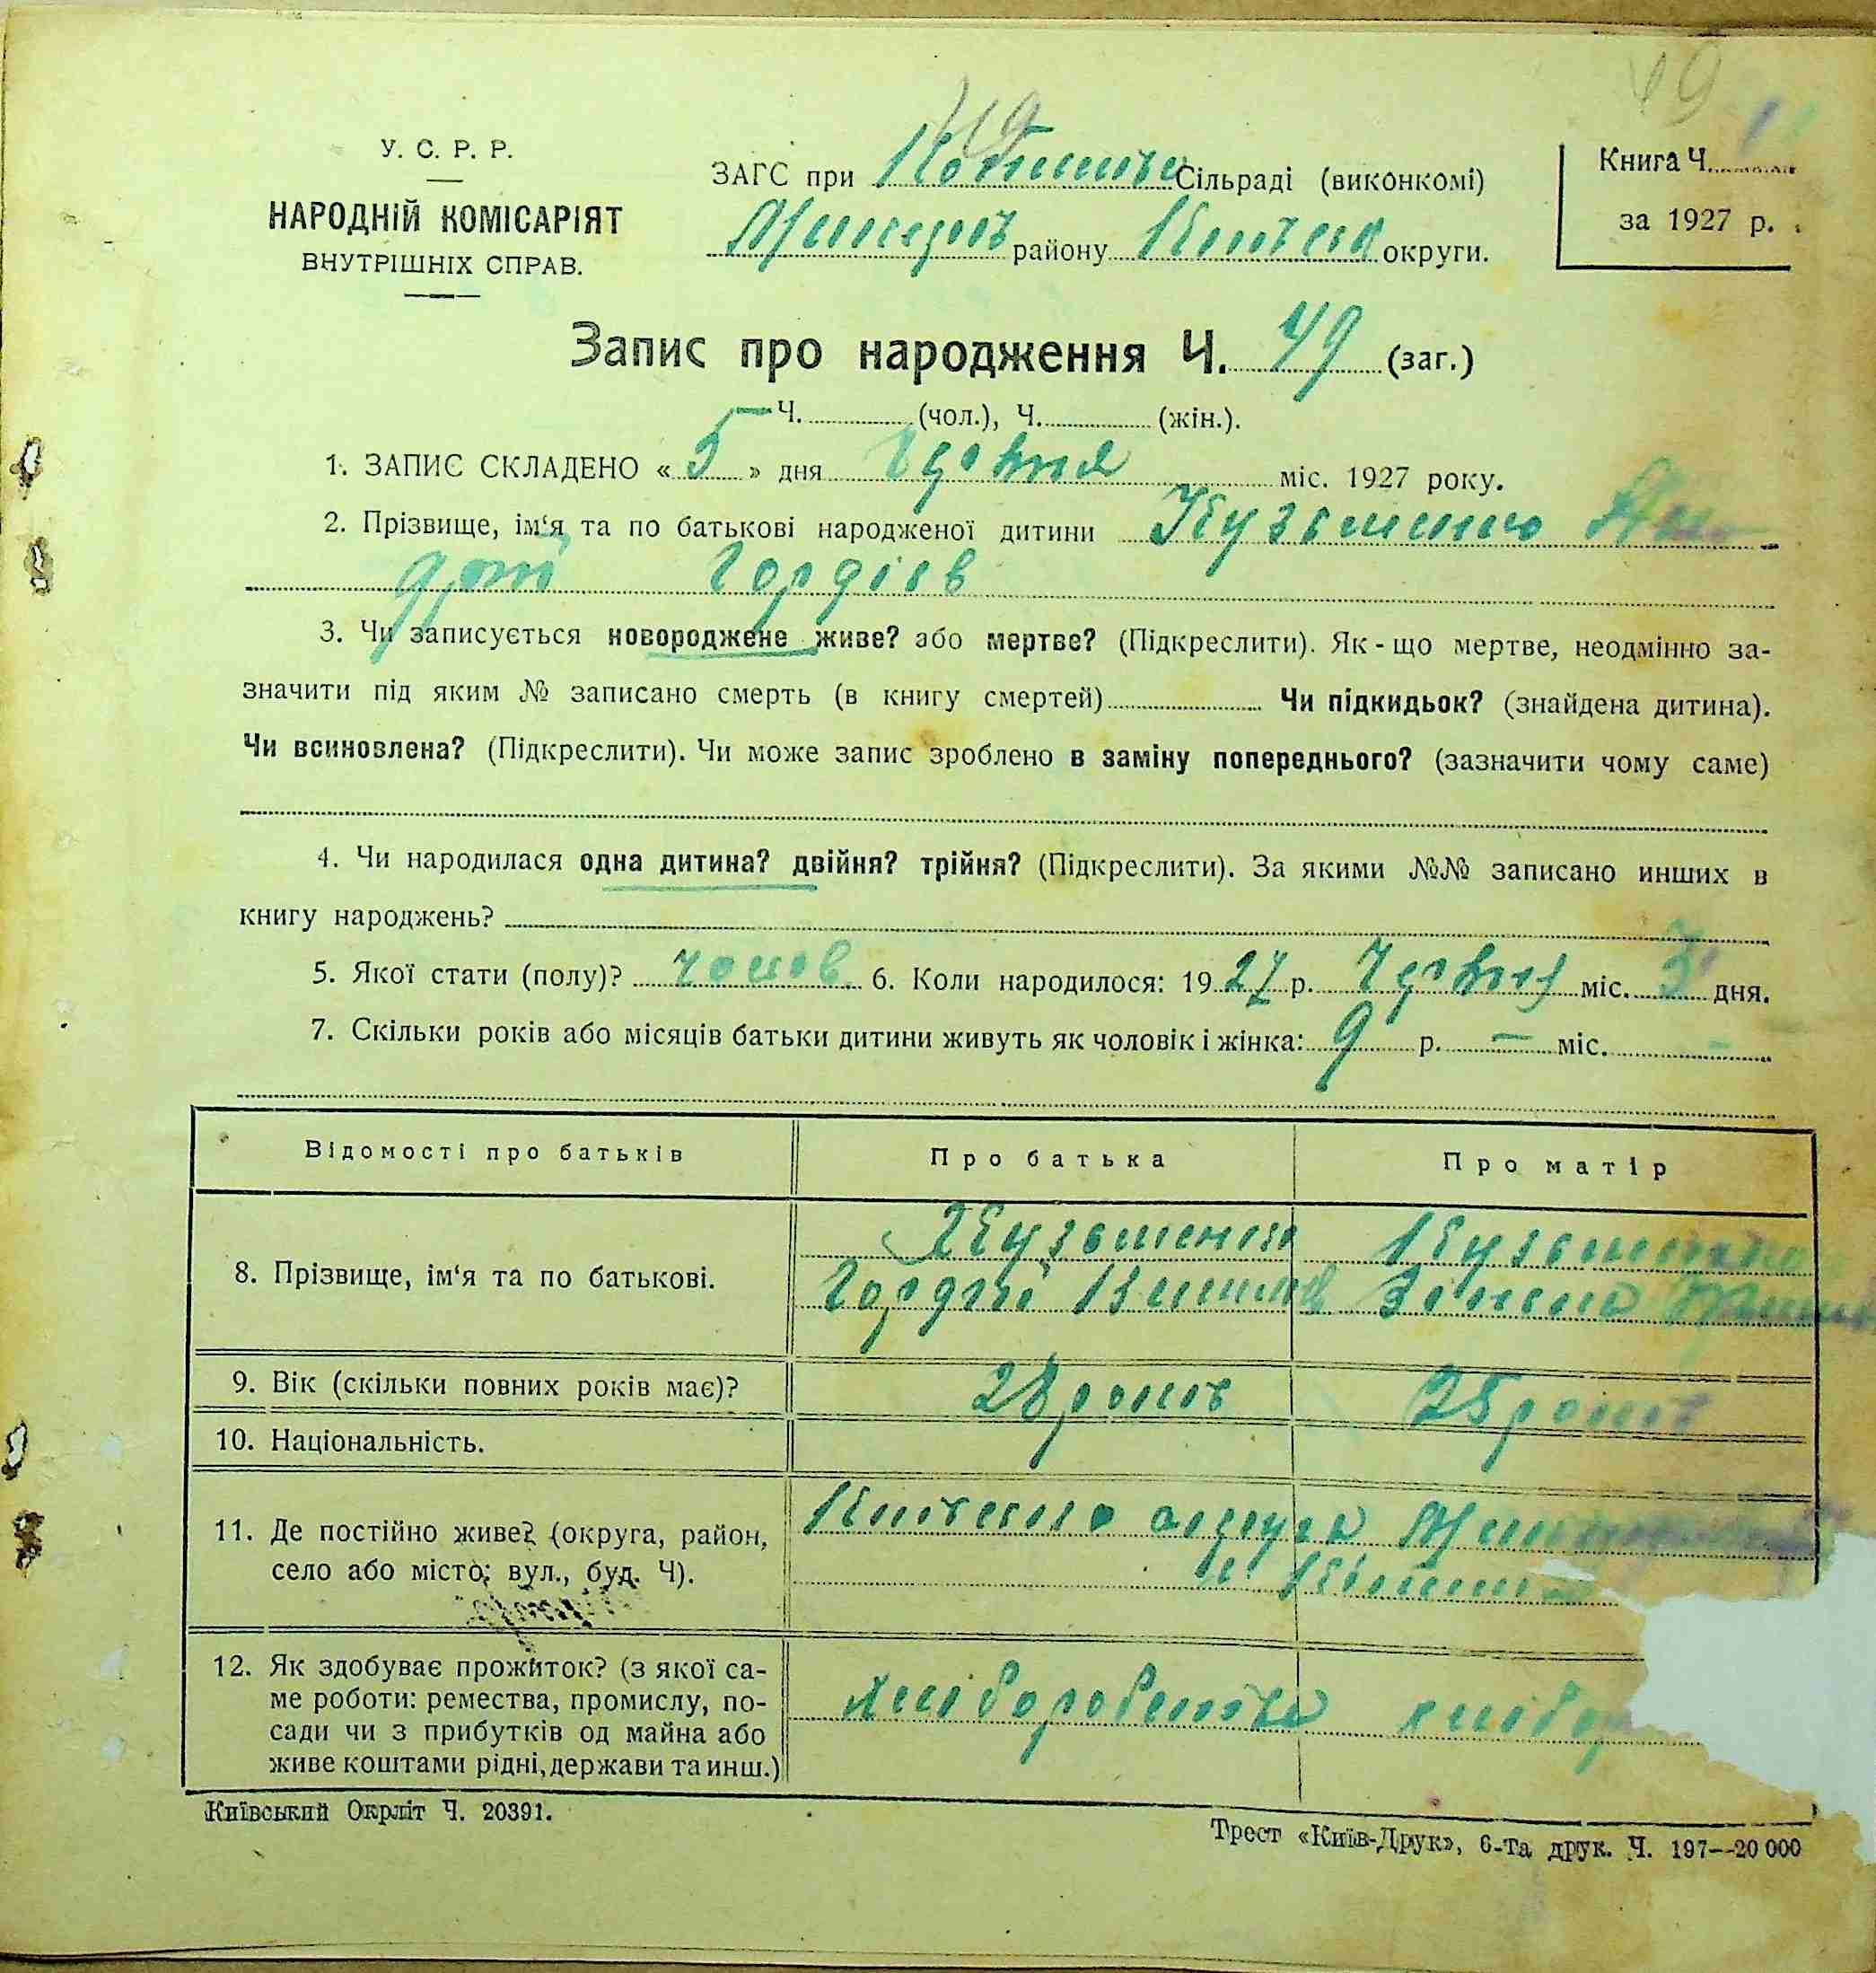 49
49
У. С. Р. Р.
НАРОДНІЙ КОМІСАРІЯТ
ВНУТРІШНІХ СПРАВ.
ЗАГС при Сільраді (виконкомі)
району округи.
Книга Ч.
за 1927 р.
Запис про народження Ч. 49 (заг.)
Ч. (чол.), Ч. (жін.).
1. ЗАПИС СКЛАДЕНО « 5 » дня Червня міс. 1927 року.
2. Прізвище, ім‘я та по батькові народженої дитини Кузьменко Ан-
дрій Гордіев
3. Чи записується новороджене живе? або мертве? (Підкреслити). Як-що мертве, неодмінно за-
значити під яким № записано смерть (в книгу смертей) Чи підкидьок? (знайдена дитина).
Чи всиновлена? (Підкреслити). Чи може запис зроблено в заміну попереднього? (зазначити чому саме)
4. Чи народилася одна дитина? двійня? трійня? (Підкреслити). За якими №№ записано инших в
книгу народжень?
5. Якої стати (полу)? чолов. 6. Коли народилося: 1927 р. Червня міс. 3 дня.
7. Скільки років або місяців батьки дитини живуть як чоловік і жінка: 9 р. — міс. —
Відомості про батьків Про батька Про матір
8. Прізвище, ім‘я та по батькові.
Кузьменко Кузьменко
Гордій
9. Вік (скільки повних років має)? 28 років 25 років
10. Національність.
11. Де постійно живе? (округа, район,
село або місто; вул., буд. Ч).
Київська округа
12. Як здобуває прожиток? (з якої са-
ме роботи: ремества, промислу, по-
сади чи з прибутків од майна або
живе коштами рідні, держави та инш.)
хліборобство хлібор
Київський Окрліт Ч. 20391.
Трест «Київ-Друк», 6-та друк. Ч. 197--20 000